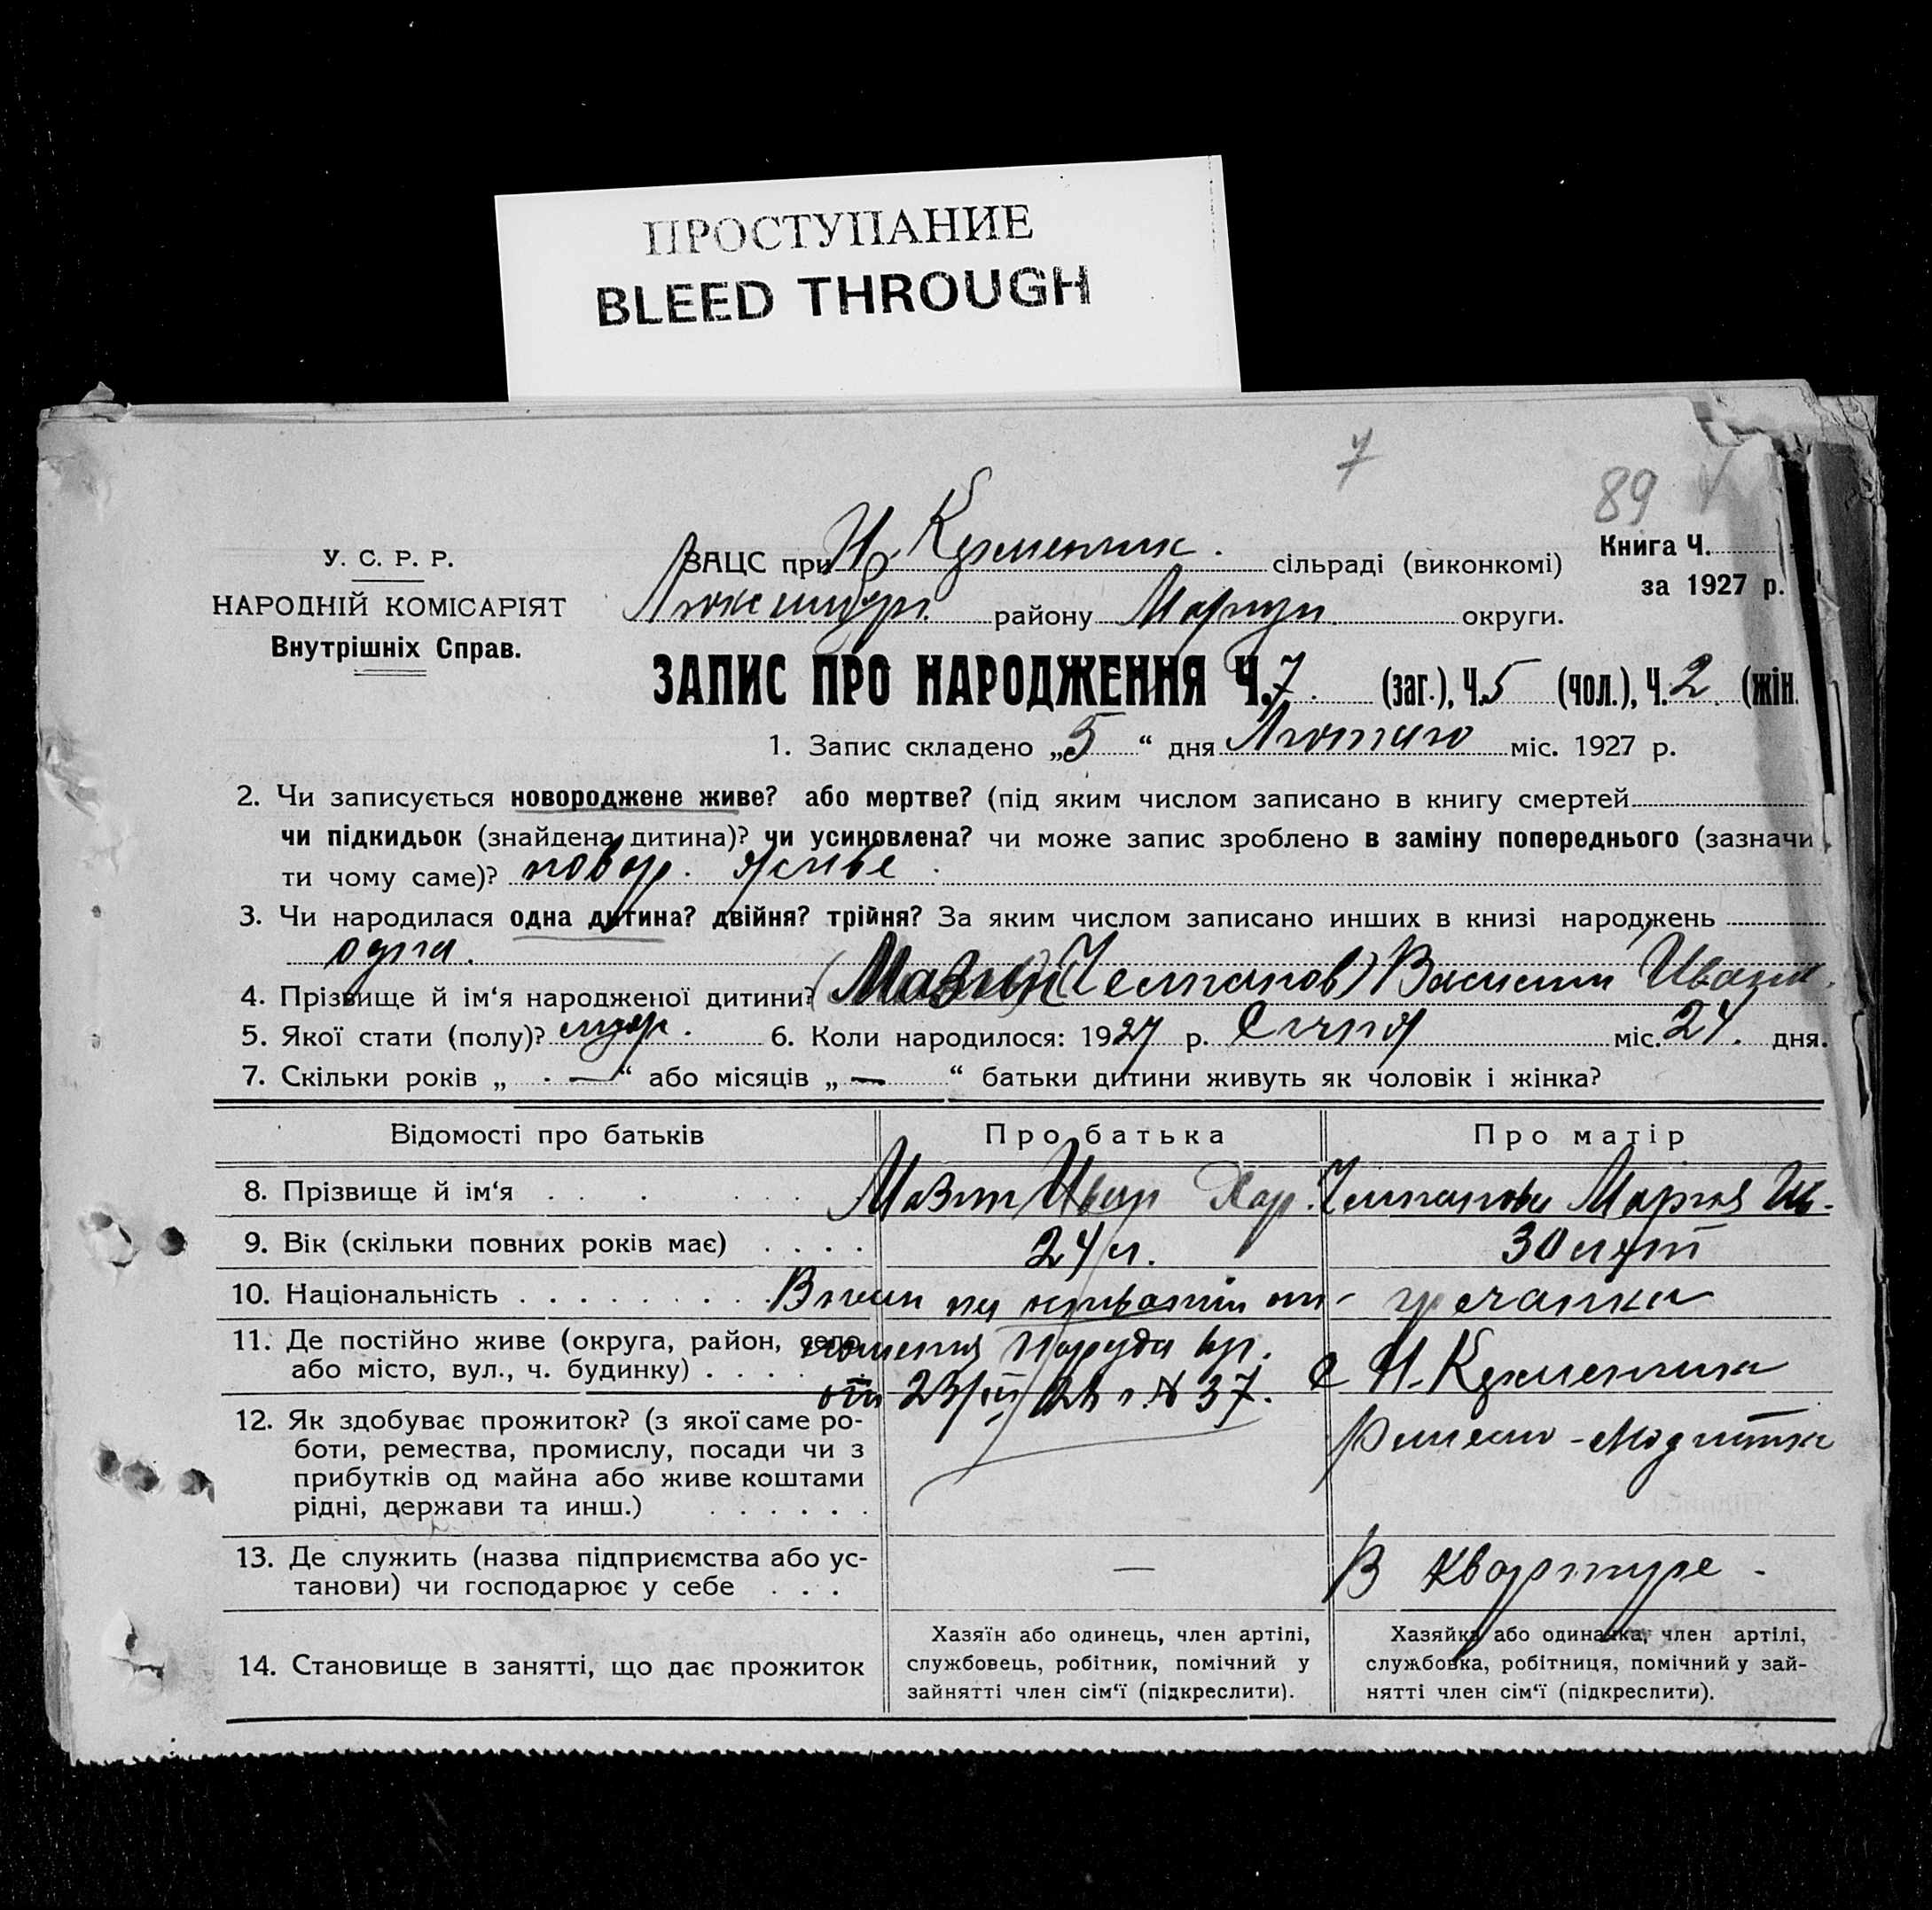 ПРОСТУПАНИЕ
BLEED THROUGH
7
89
У. С. Р. Р.
НАРОДНІЙ КОМІСАРІЯТ
Внутрішніх Справ.
ЗАЦС при Н. Керменчик. сільраді (виконкомі)
Книга Ч.
за 1927 р.
району Мариуп. округи.
ЗАПИС ПРО НАРОДЖЕННЯ Ч. 7 (заг.), Ч. 5 (чол.), Ч. 2 (жін.
1. Запис складено „5“ дня Лютого міс. 1927 р.
2. Чи записується новороджене живе? або мертве? (під яким числом записано в книгу смертей
чи підкидьок (знайдена дитина)? чи усиновлена? чи може запис зроблено в заміну попереднього (зазначи
ти чому саме)? новор. живе.
3. Чи народилася одна дитина? двійня? трійня? За яким числом записано инших в книзі народжень
одна.
4. Прізвище й ім‘я народженої дитини? (Мазин) (Челпанов) Василий Иван.
5. Якої стати (полу)? муж. 6. Коли народилося: 1927 р. Січня міс. 24. дня.
7. Скільки років „ — “ або місяців „ — “ батьки дитини живуть як чоловік і жінка?
Відомості про батьків
Про батька
Про матір
8. Прізвище й ім‘я
Мазин Иван Хар.
Челпанова Мария Ив.
9. Вік (скільки повних років має)
24 л.
30 лет
10. Національність
гречанка
11. Де постійно живе (округа, район, село
або місто, вул., ч. будинку)
от 23/ 28 г. № 37.
с Н. Керменчик
12. Як здобуває прожиток? (з якої саме ро-
боти, ремества, промислу, посади чи з
прибутків од майна або живе коштами
рідні, держави та инш.)
13. Де служить (назва підприємства або ус-
танови) чи господарює у себе
—
В квартире.
14. Становище в занятті, що дає прожиток
Хазяїн або одинець, член артілі,
службовець, робітник, помічний у
зайнятті член сім‘ї (підкреслити).
Хазяйка або одиначка, член артілі,
службовка, робітниця, помічний у зай-
нятті член сім‘ї (підкреслити).